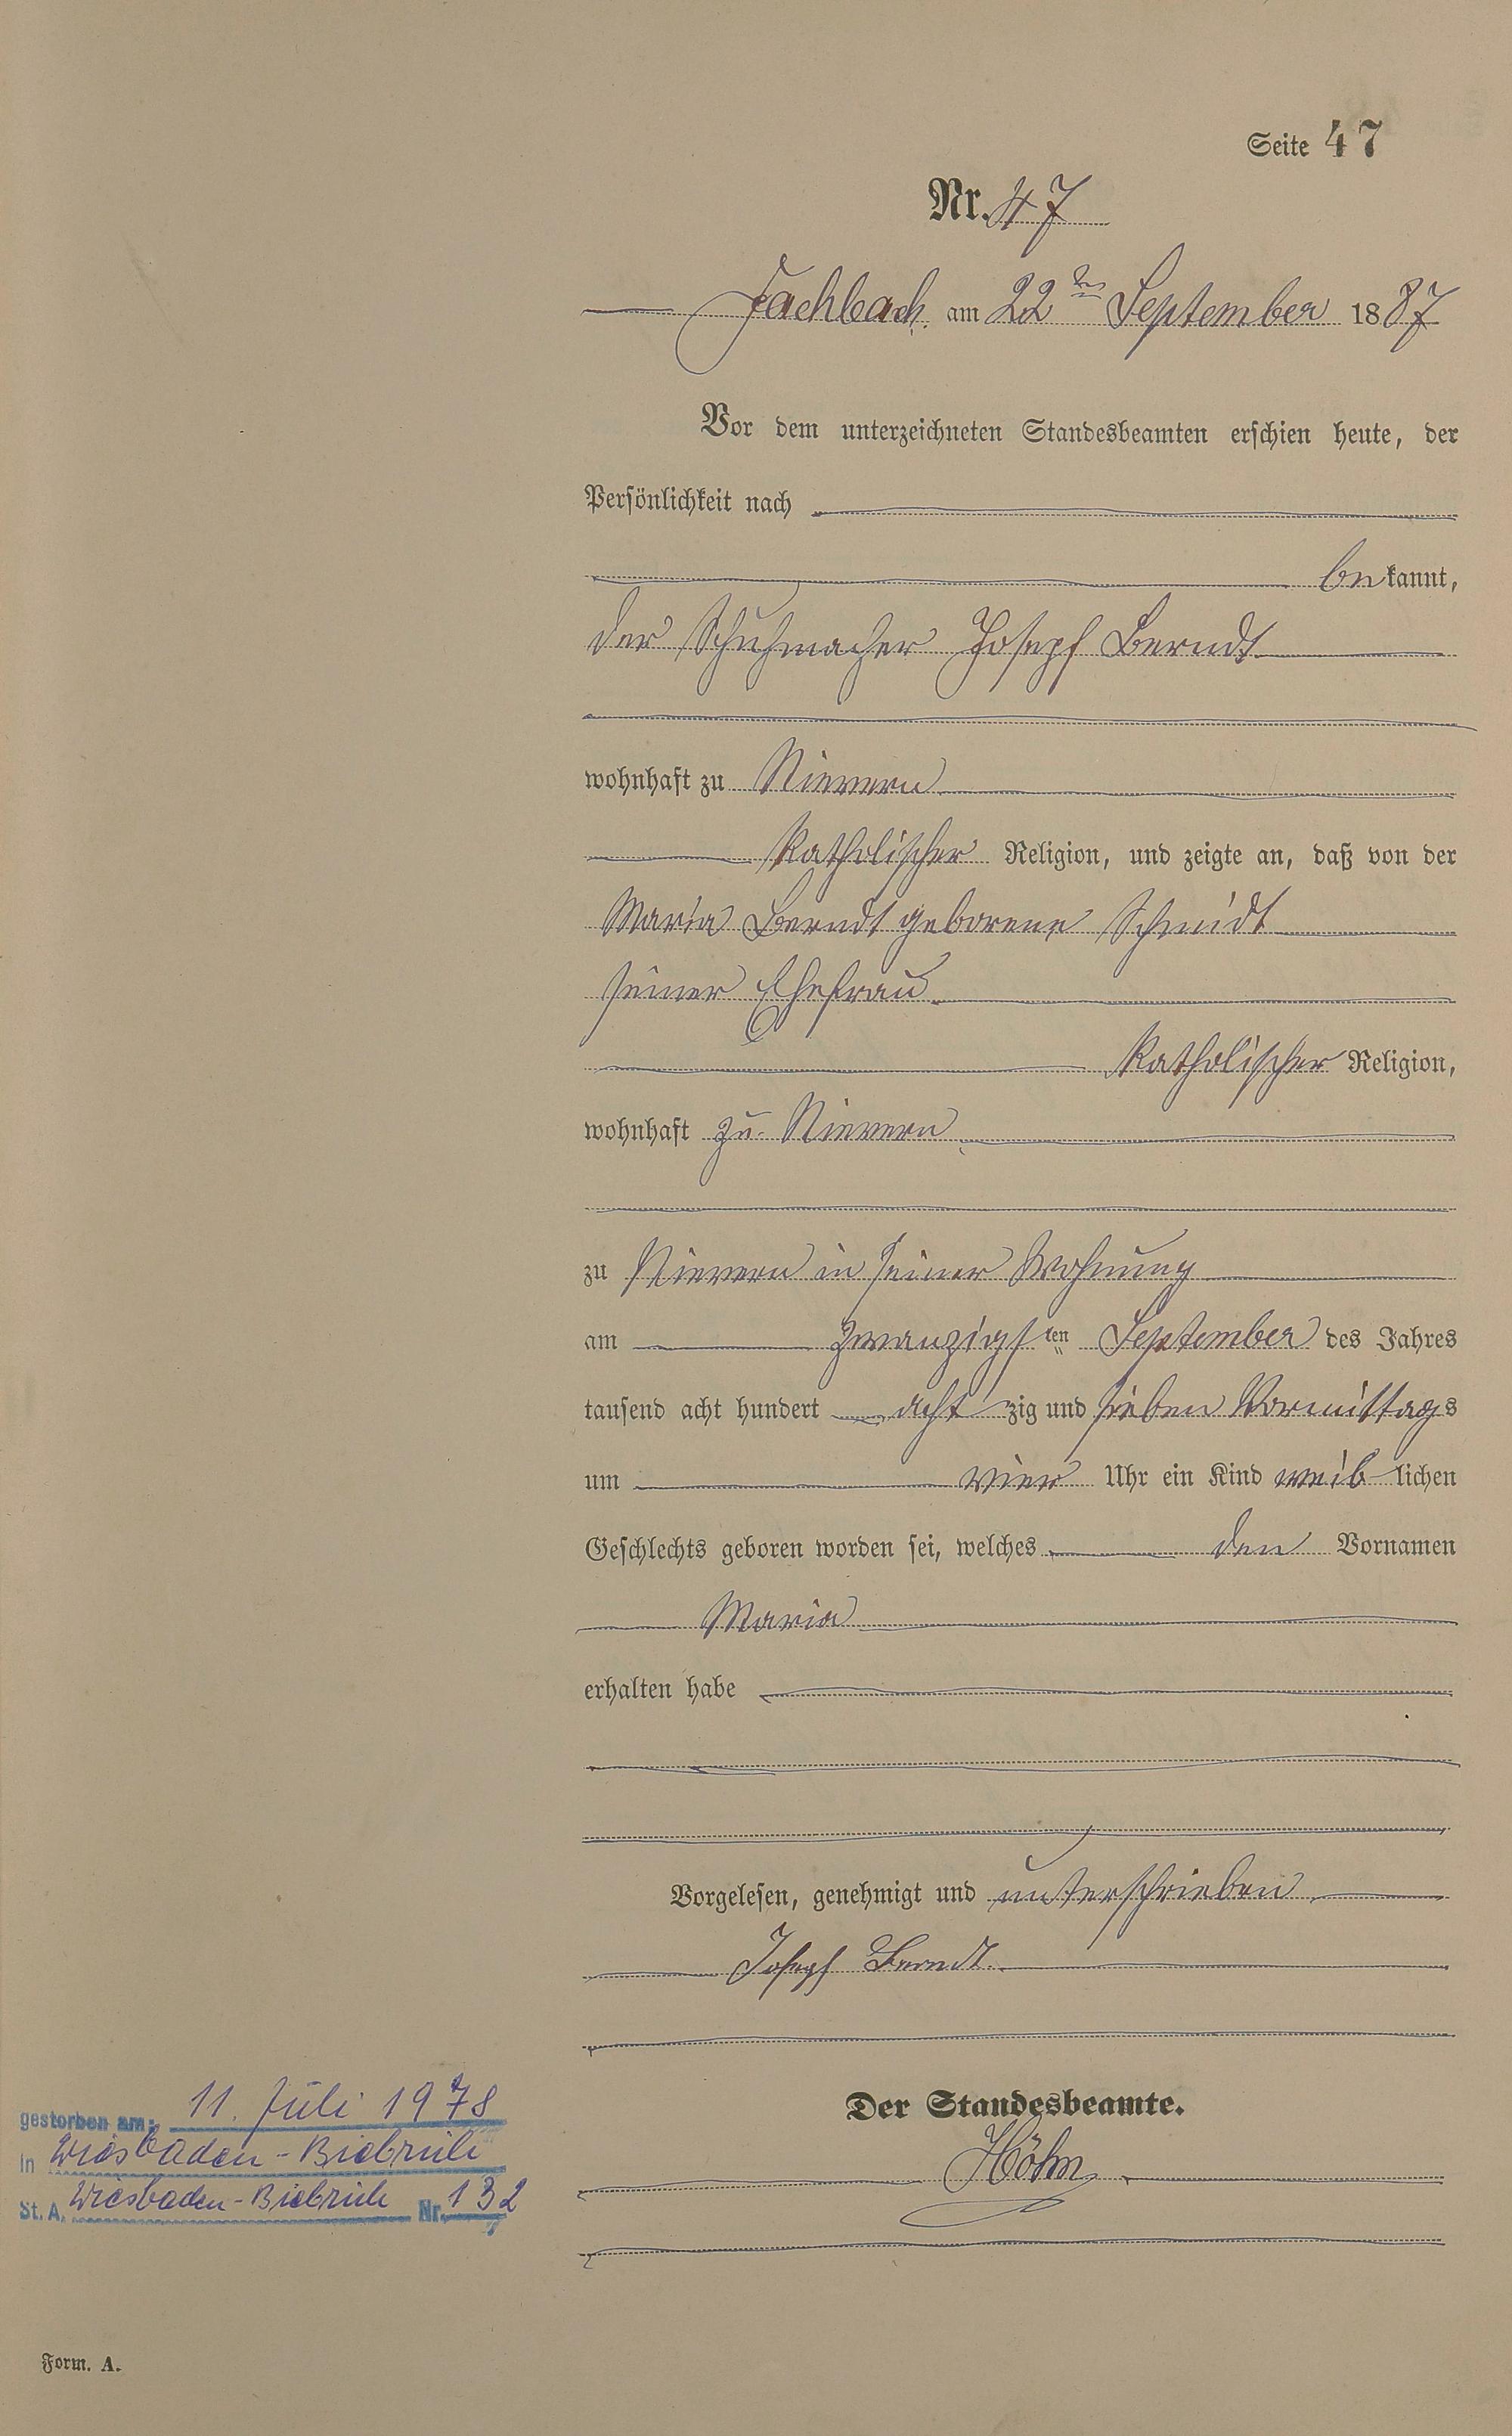 Seite 47
Nr. 47
Fachbach am 22ten September 1887
Vor dem unterzeichneten Standesbeamten erschien heute, der
Persönlichkeit nach
bekannt,
der Schuhmacher Joseph Berndt
wohnhaft zu Nievern
katholischer Religion, und zeigte an, daß von der
Maria Berndt geborene Schmidt
seiner Ehefrau
katholischer Religion,
wohnhaft zu Nievern
zu Nievern in seiner Wohnung
am zwanzigsten September des Jahres
tausend acht hundert achtzig und sieben Vormittags
um vier Uhr ein Kind weiblichen
Geschlechts geboren worden sei, welches den Vornamen
Maria
erhalten habe
Vorgelesen, genehmigt und unterschrieben
Joseph Berndt.
Der Standesbeamte.
Höhn
gestorben am: 11. Juli 1978
in Wiesbaden-Biebrich
St. A. Wiesbaden-Biebrich Nr. 132
Form. A.